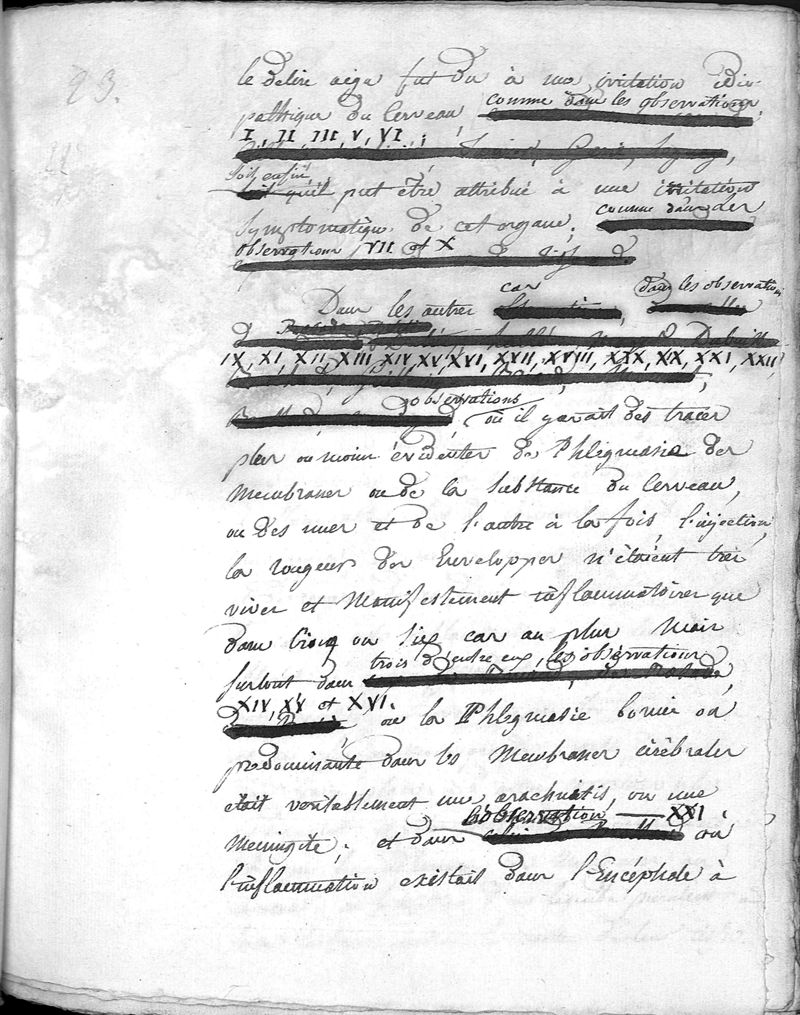 93.
le délire aigu fut dû à une irritation idio-
pathique du Cerveau, comme dans les observations
I, II, III, V, VI ;
soit enfin
qu'il put être attribué à une irritation
symptomatique de cet organe ; comme dans les
observations VII et X
Dans les autres cas dans les observations
IX, XI, XII, XIII, XIV, XV, XVI, XVII, XVIII, XIX, XIX, XXI, XXII,
observations où il y avait des traces
plus ou moins évidentes de Phlegmasie des
Membranes ou de la substance du Cerveau,
ou des unes et de l'autre à la fois, l'injection,
la rougeur des Enveloppes n'étaient très
vives et Manifestement inflammatoires que
dans cinq ou six cas au plus Mais
surtout dans trois d'entre eux, les observations
XIV, XV et XVI. où la Phlegmasie bornée ou
prédominante dans les Membranes cérébrales
était véritablement une arachnitis, ou une
Meningite ; et dans l'observation XXI où
l'inflammation existait dans l'Encéphale à